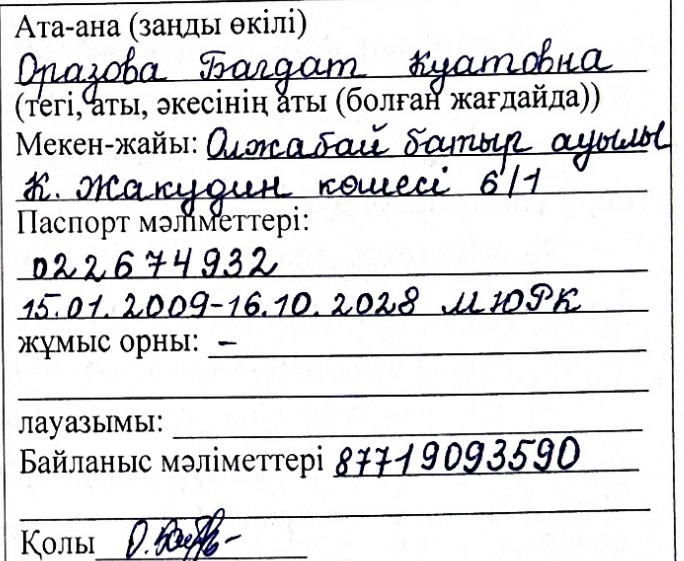 Ата-ана (заңды өкілі)
Оразова Багдат Куатовна
(тегі, аты, әкесінің аты (болған жағдайда))
Мекен-жайы: Олжабай батыр ауылы
К. Жакудин көшесі 6/1
Паспорт мәліметтері:
022674932
15.01.2009-16.10.2028 МЮРК
жұмыс орны: –
лауазымы:
Байланыс мәліметтері 87719093590
Қолы